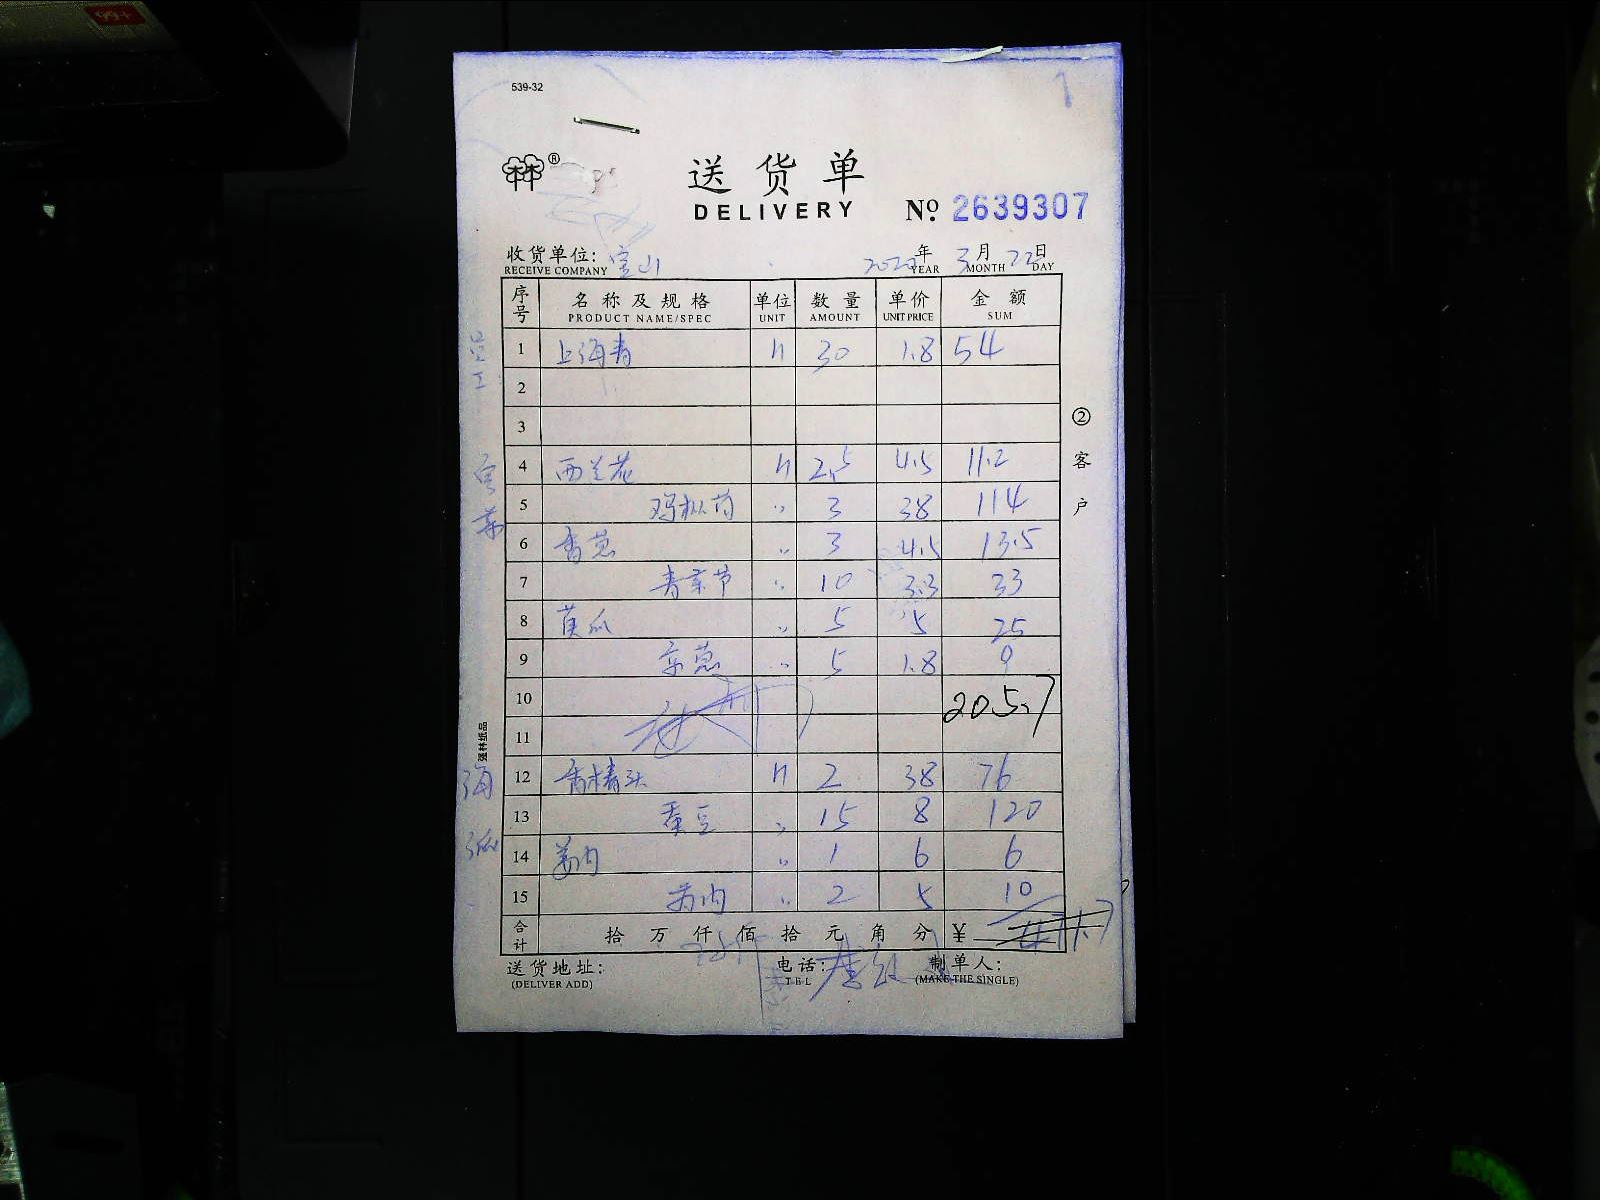 99+
539-32
®
送货单
DELIVERY
№ 2639307
收货单位: 宝山 2020年 3月 22日
RECEIVE COMPANY YEAR MONTH DAY
序号 名称及规格 单位 数量 单价 金额
PRODUCT NAME/SPEC UNIT AMOUNT UNIT PRICE SUM
1 上海青 斤 30 1.8 54
2
3
4 西兰花 斤 2.5 4.5 11.2
5 鸡枞菌 〃 3 38 114
6 香葱 〃 3 4.5 13.5
7 青菜节 〃 10 3.3 33
8 黄瓜 〃 5 5 25
9 京葱 〃 5 1.8 9
10 205.7
11
12 斤 2 38 76
13 蚕豆 〃 15 8 120
14 姜肉 〃 1 6 6
15 〃 2 5 10
合计 拾 万 仟 佰 拾 元 角 分 ¥
送货地址: 电话: 制单人:
(DELIVER ADD) TEL (MAKE THE SINGLE)
② 客户
强林纸品
员工
海派